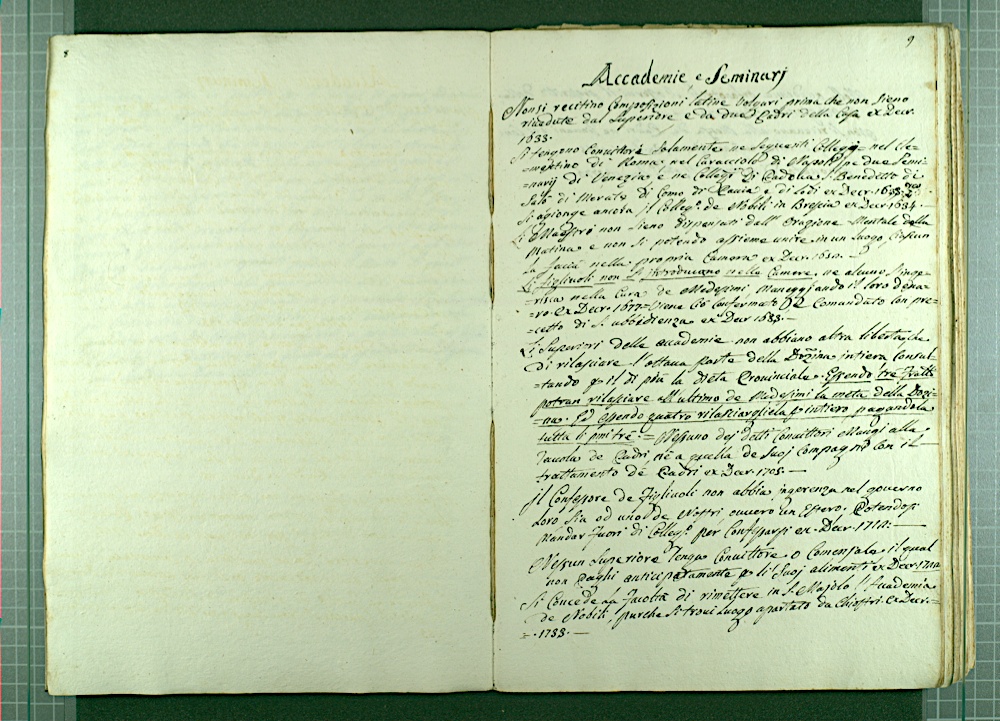 8
9
Accademie e Seminarj
Non si recitino Composizioni latine volgari prima che non sieno
rivedute dal Superiore e da due Padri della Casa ex Decr.
1633.
Si tengono Convittori solamente ne seguenti Collegj nel Cle-
=mentino di Roma, nel Caracciolo di Napoli, ne due Semi-
=narij di Venezia e ne Collegj di Padova S. Benedetto di
Salò di Merate di Como di Pavia e di Lodi ex Decr.
Si agionge ancora il Colleg.º de Nobili in Brescia ex Decr. 1634.
Maestri non sieno dispensati dall' Orazione Mentale della
Matina e non si potendo assieme unire in un luogo Ciascun
la faccia nella propria Camera ex Decr.
Li figliuoli non s'introducano nelle Camere, ne alcuno s'inge-
=risca nella Cura de Medesimi Maneggiando il loro dena-
=ro. Ex Decr. 1677. Viene Ciò Confermato Comandato Con pre-
=cetto di S. ubbidienza ex Decr. 1683.
Superiori delle accademie non abbiano altra libertà, che
di rilasciare l'ottava parte della Dozina intiera Consul
=tando p il di più la Dieta Provinciale. Essendo tre Fratelli
potran rilasciare all' ultimo de Medesimi la metà della Dozi-
=na. Ed essendo quatro rilasciargliela p intiero pagandola
tutta li pmi tre. = Nessuno dei detti Convittori Mangi alla
Tavola de Padri ne a quella de Suoj Compagni Con il
trattamento de Padri ex Decr. 1705.
Il Confessore de Figliuoli non abbia ingerenza nel governo
loro sia od uno de Nostri ovvero un Estero, Potendosi
Mandar Fuori di Colleg.º per Confessarsi ex Decr.
Nessun Superiore Tenga Convittore o Comensale il qual
non paghi anticipatamente p li Suoj alimenti ex Decr.
Si Concede la facoltà di rimettere in S. Majolo l'Accademia
de Nobili, purche si trovi Luogo apartato da Chierici ex Decr.
=. 1733.